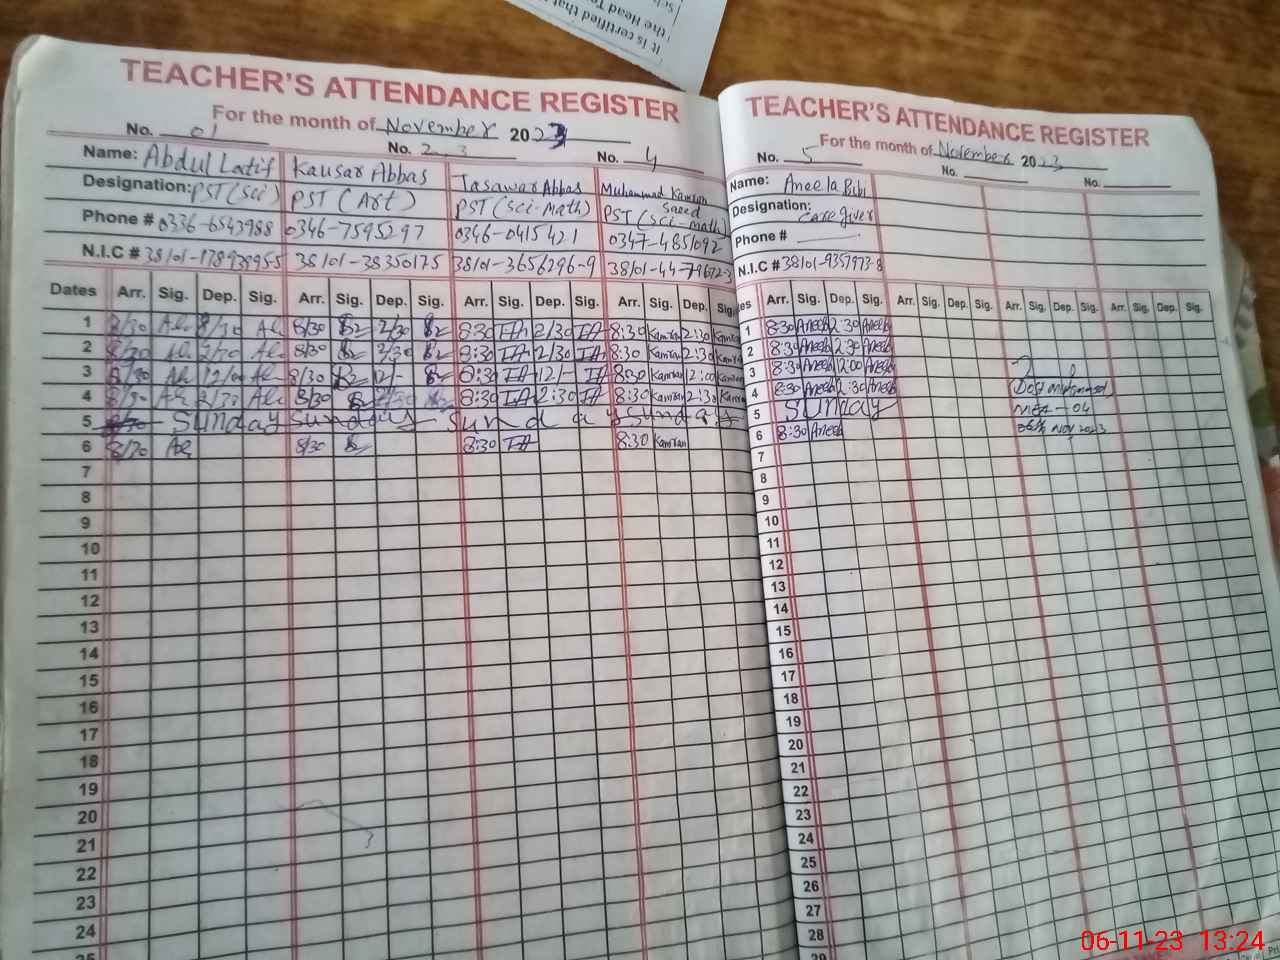 It is certified that
the Head Te
TEACHER'S ATTENDANCE REGISTER
For the month of November 2023
No. 01 No. 2 3 No. 4
Name: Abdul Latif Kausar Abbas Tasawar Abbas Muhammad Kamran Saeed
Designation: PST (Sci) PST (Art) PST (Sci-Math) PST (Sci-math)
Phone # 0336-6543988 0346-7595297 0346-0415421 0347-4851092
N.I.C # 38101-38350175 38101-3656296-9
Dates Arr. Sig. Dep. Sig. Arr. Sig. Dep. Sig. Arr. Sig. Dep. Sig. Arr. Sig. Dep. Sig.
1 8/30 8/30 2/30 8:30 TA 2/30 TA 8:30 Kamran 2:30 Kamran
2 8/30 2/30 8:30 TA 2/30 TA 8:30 Kamran 2:30 Kamran
3 12/00 8/30 12/- 8:30 TA 12/- TA 8:30 Kamran 12:00 Kamran
4 8/30 2/30 8:30 TA 2:30 TA 8:30 Kamran 2:30 Kamran
5 Sunday Sunday Sunday Sunday
6 8/30 8:30 TA 8:30 Kamran
7
8
9
10
11
12
13
14
15
16
17
18
19
20
21
22
23
24
25
TEACHER'S ATTENDANCE REGISTER
For the month of November 2023
No. 5 No. No.
Name: Aneela Bibi
Designation: Care giver
Phone #
N.I.C # 38101-9357973-8
es Arr. Sig. Dep. Sig. Arr. Sig. Dep. Sig. Arr. Sig. Dep. Sig. Arr. Sig. Dep. Sig.
1 8:30 Aneela 2:30 Aneela
2 8:30 Aneela 2:30 Aneela
3 8:30 Aneela 12:00 Aneela
4 8:30 Aneela 2:30 Aneela
Dost Muhammad
5 Sunday
MEA - 04
6 8:30 Aneela
06th Nov 2023
7
8
9
10
11
12
13
14
15
16
17
18
19
20
21
22
23
24
25
26
27
28
29
06-11-23 13:24